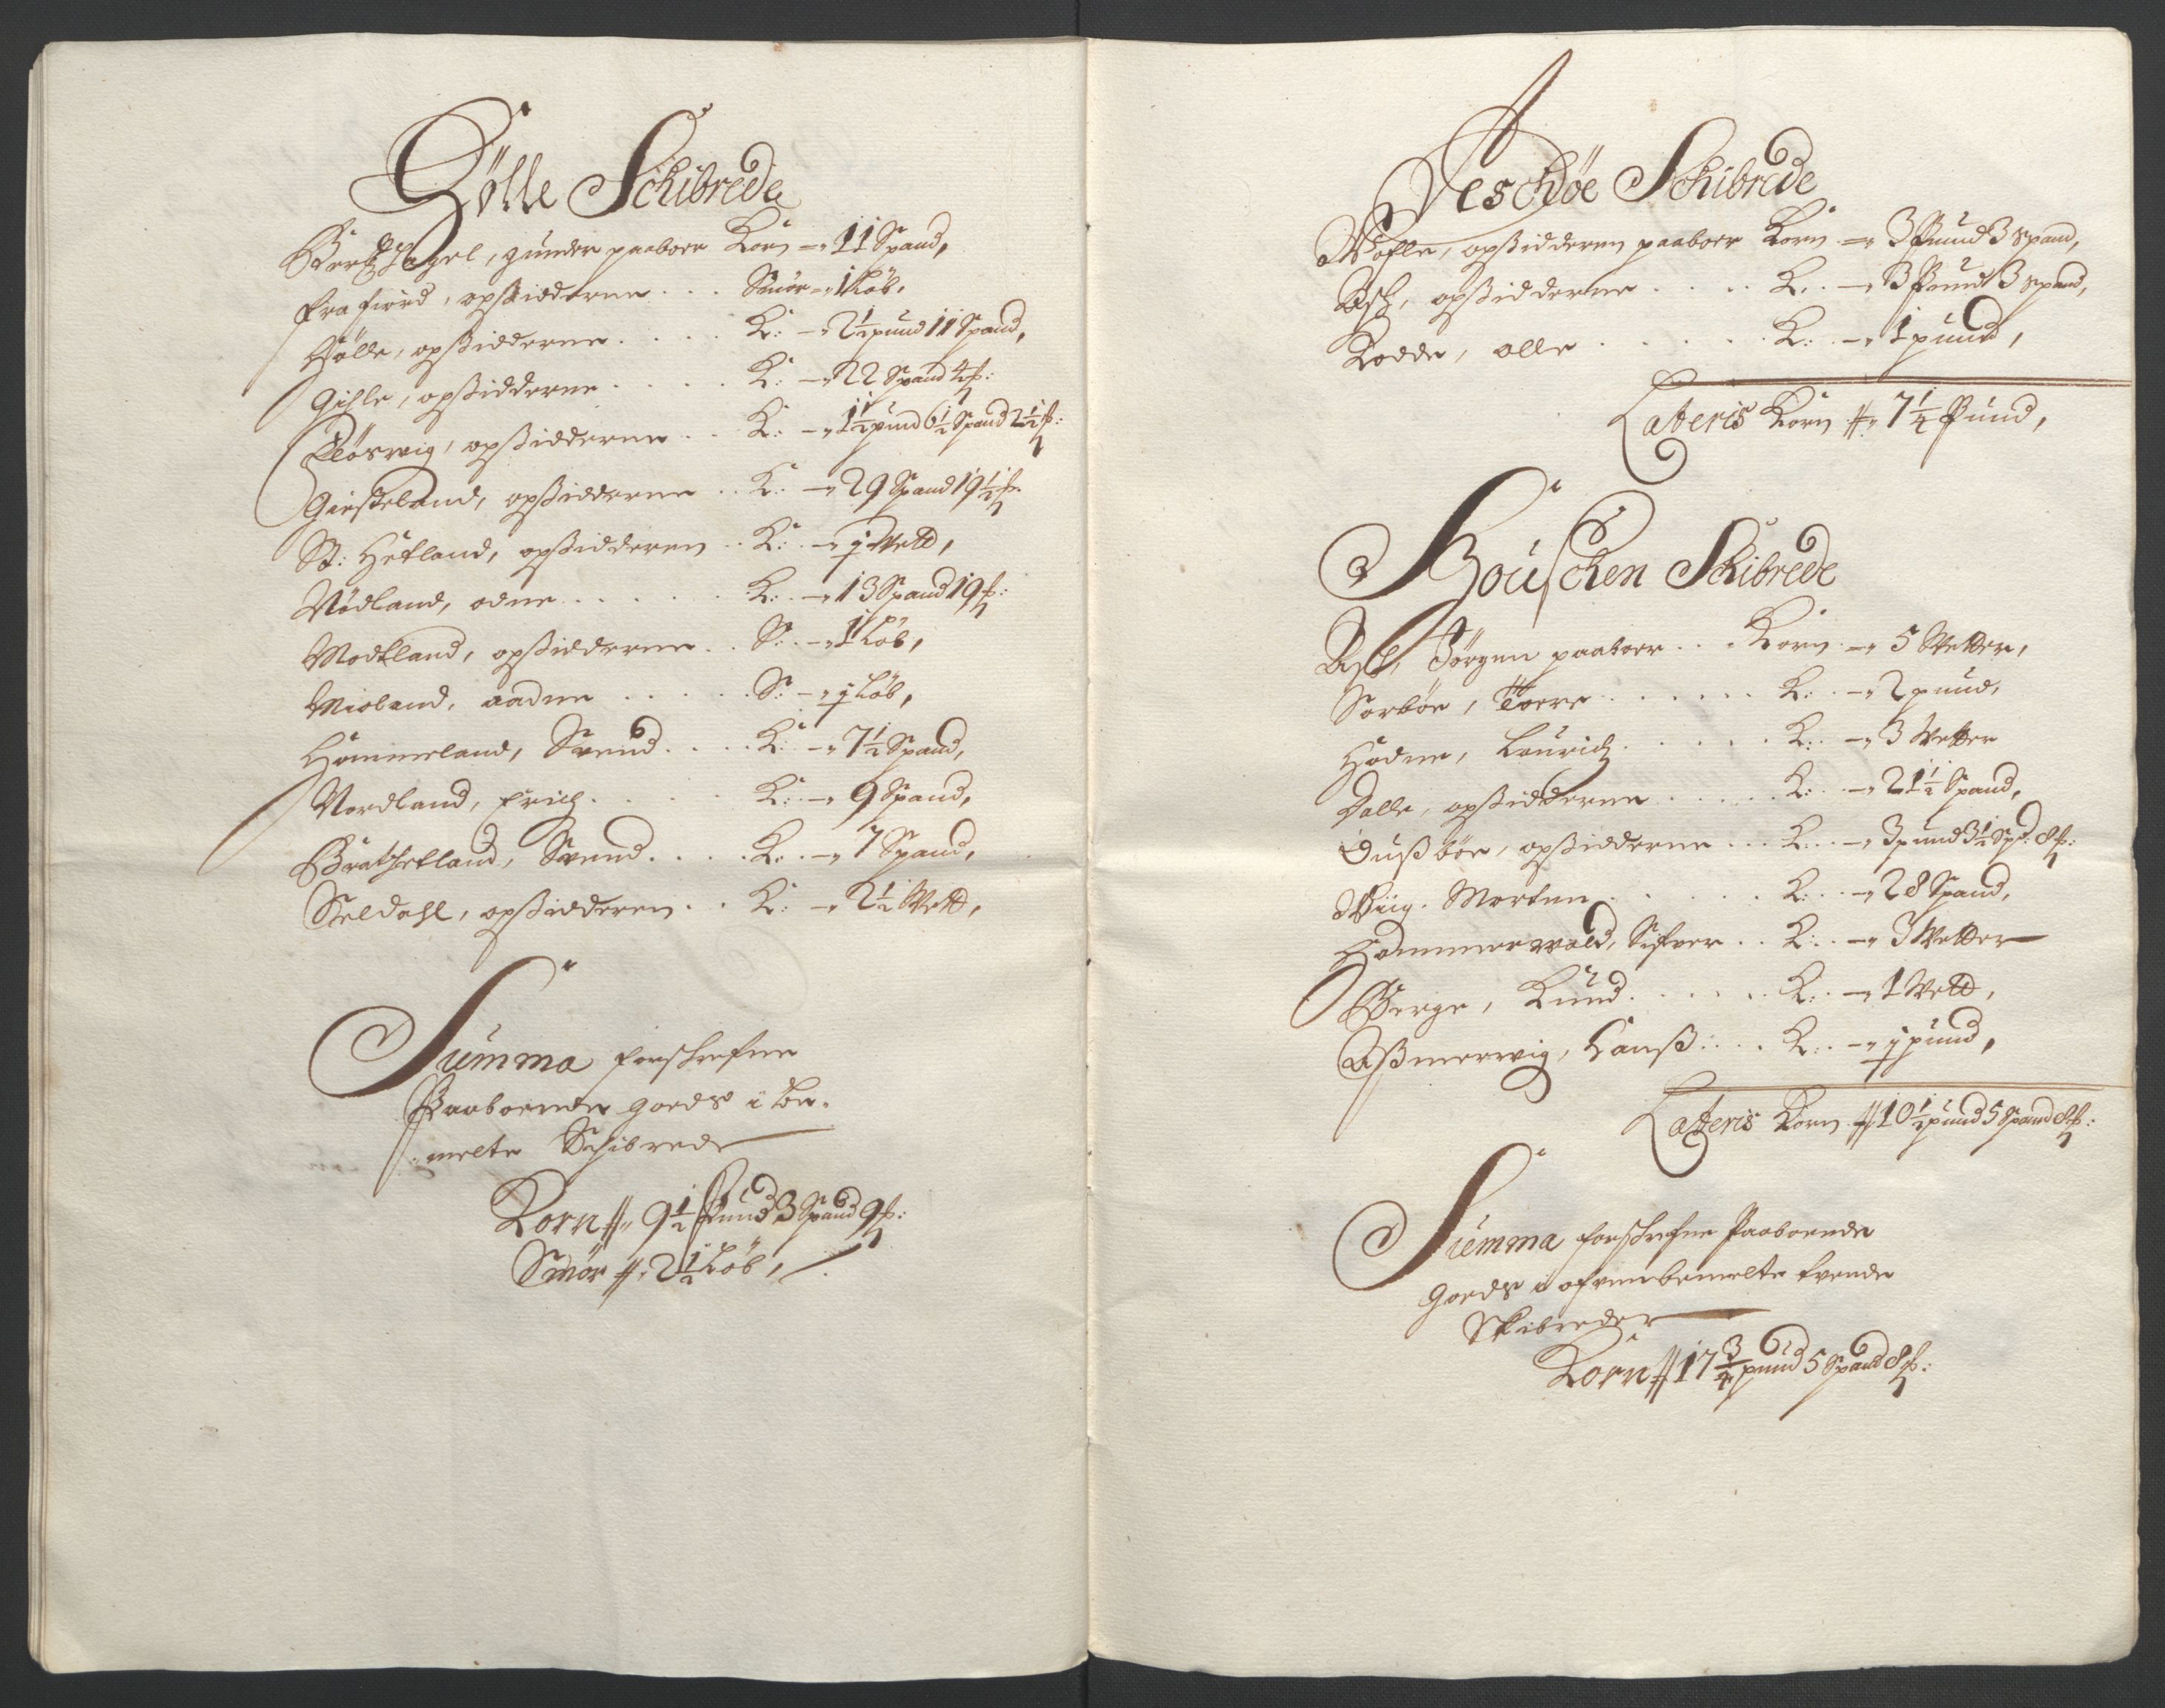 Hölle Schibrede
Berge Hagel, gunder paaboer Korn - 11 Spand,
Frafiord, opsidderne . . . Smör - 1 Löb,
Hölle, opsidderne . . . . K: - 2½ pund 11 Spand,
Gihle, opsidderne . . . . K: - 22 Spand 4 f:
Flöswig, opsidderne . . K: - 1½ pund 6½ Spand 2½ f:
Giesteland, opsidderne . . K: - 29 Spand 19½ f:
St: Hetland, opsidderen . . K: - ½ Vett,
Nödland, odne . . . . . K: - 13 Spand 19 f:
Modtland, opsidderne . . S: - 1 Löb,
Mioland, aadne . . . . . S: - ½ Löb,
Hommeland, Svend . . . . K: - 7½ Spand,
Nordland, Erich . . . . K: - 9 Spand,
Bratthetland, Svend . . . . K: - 7 Spand,
Seldahl, opsidderen . . K: - 2½ Vett,
Summa forschrefne
Paaboende goeds i be-
melte Schibrede
Korn 9½ Pund 3 Spand 9 f:
Smör 2½ Löb,
Aeschöe Schibrede
Wofle, opsidderen paaboer Korn - 3 Pund 3 spand,
Ash, opsidderne . . . . K: - 3 Pund 3 spand,
Rodde, olle . . . . . K: - 1 pund,
Lateris Korn 7¼ Pund,
Houschen Schibrede
Ash, Jörgen paaboer . . . Korn - 5 Vetter,
Sorböe, Toere . . . . . K: - 2 pund,
Hodne, Laurich . . . . . K: - 3 Vetter
Dalle, opsidderne . . . . K: - 21½ Spand,
Dußböe, opsidderne . . . K: - 3 pund 3½ Spd: 8 f:
Wiig, Morten . . . . . K: - 28 Spand,
Hammerwold, Sifver . . K: - 3 Vetter
Berge, Knud . . . . . K: - 1 Vett,
Aßmerwig, Hanß . . . K: - ½ pund,
Lateris Korn 10½ pund 5 Spand 8 f:
Summa forschrefne Paaboende
Goeds i ofvenbemelte tvende
Skibreder
Korn 17¾ pund 5 Spand 8 f: